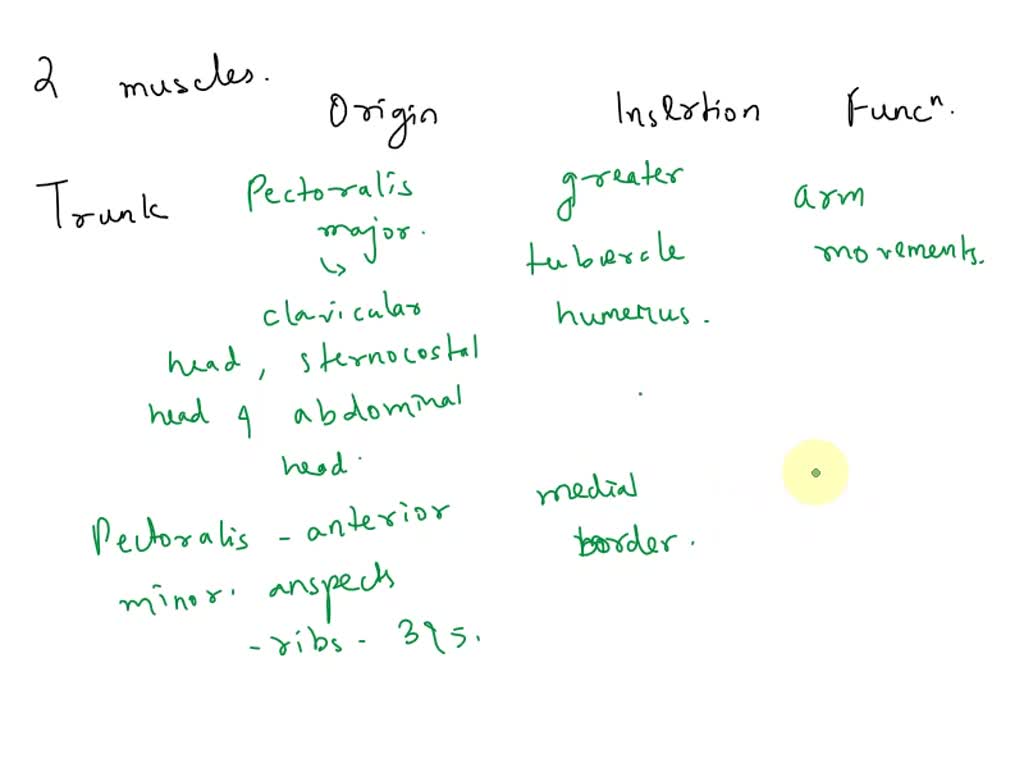 2 muscles.
Origin Insertion Funcⁿ.
Trunk Pectoralis greater arm
major. tubercle movements.
↳
clavicular humerus.
head, sternocostal
head & abdominal
head.
medial
Pectoralis - anterior border.
minor. anspects
- ribs - 3 & 5.